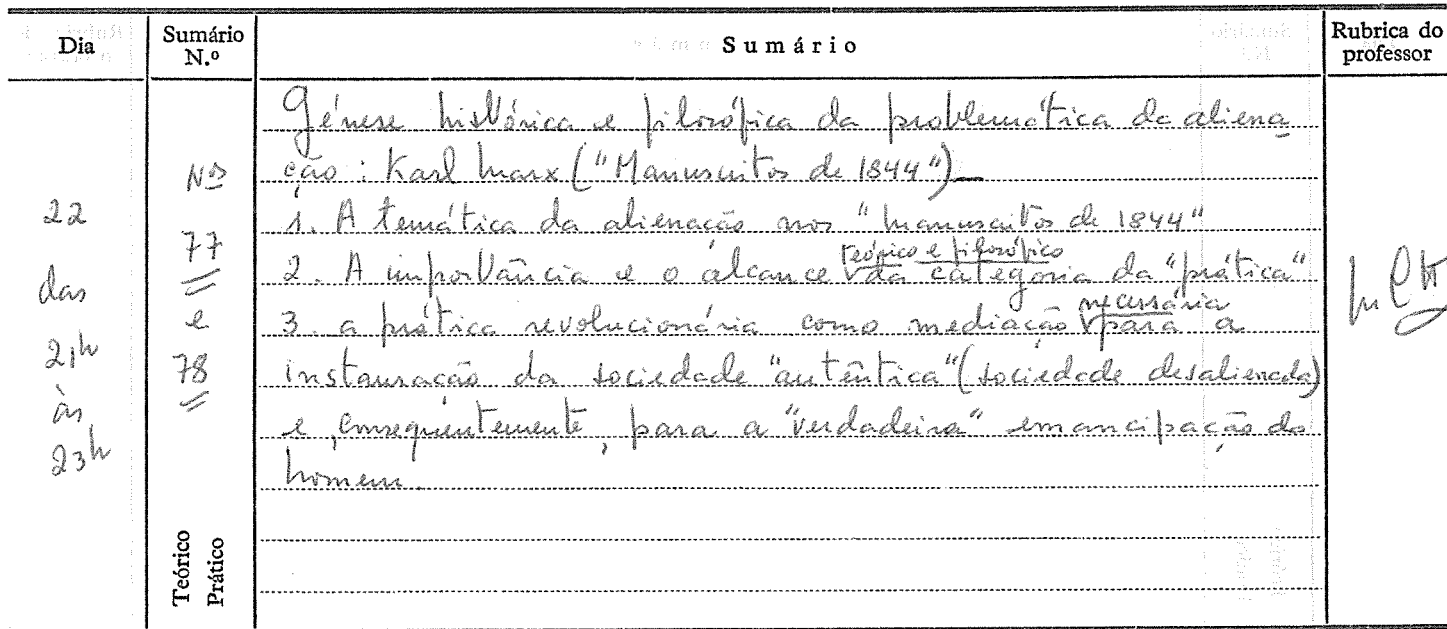 Dia
Sumário N.º
Sumário
Rubrica do professor
22
das
21h
às
23h
Nos
77
e
78
Teórico
Prático
Génese histórica e filosófica da problemática da aliena
ção : Karl Marx ("Manuscritos de 1844")
1. A temática da alienação nos "Manuscritos de 1844"
2. A importância e o alcance teórico e filosófico da categoria da "prática"
3. a prática revolucionária como mediação necessária para a
instauração da sociedade "autêntica" (sociedade desalienada)
e, consequentemente, para a "verdadeira" emancipação do
homem.